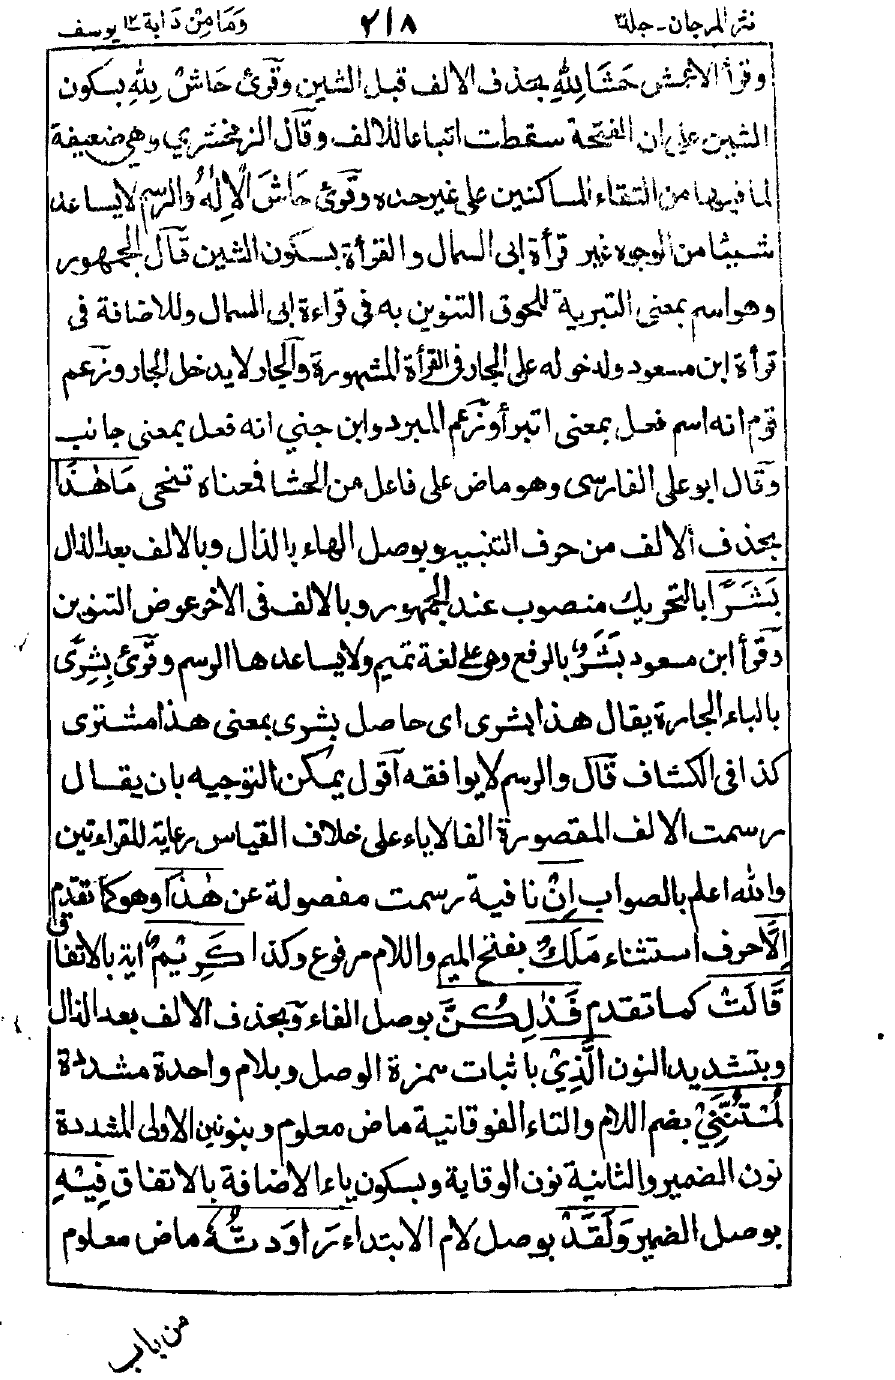 نثر المرجان - جلد ٣ ٢١٨ وَمَا مِنْ دَابة ١٢ يوسف
وقرأ الاعمش حَشَا لِلّٰهِ بحذف الالف قبل الشين وقرئ حَاشْ لِلّٰهِ بسكون
الشين على ان الفتحة سقطت اتباعا للالف وقال الزمخشري وهي ضعيفة
لما فيها من التقاء الساكنين على غير حده وقرئ حَاشَ الْاِلٰهُ والرسم لا يساعد
شيئا من الوجوه غير قرأة ابى السمال والقرأة بسكون الشين قال الجمهور
وهو اسم بمعنى التبرية للحوق التنوين به فى قراءة ابى السمال وللاضافة فى
قرأة ابن مسعود ولدخوله على الجار فى القرأة المشهورة والجار لا يدخل الجار وزعم
قوم انه اسم فعل بمعنى اتبرأ وزعم المبرد وابن جني انه فعل بمعنى جانب
وقال ابو على الفارسى وهو ماض على فاعل من الحشا فمعناه تنحى مَا هٰذَا
بحذف الالف من حرف التنبيه وبوصل الهاء بالذال وبالالف بعد الذال
بَشَرًا بالتحريك منصوب عند الجمهور وبالالف فى الاخر عوض التنوين
وقرأ ابن مسعود بَشَرٌ بالرفع وهو على لغة تميم ولا يساعدها الرسم وقرئ بِشِرًى
بالباء الجارة يقال هذا بشرى اى حاصل بشرى بمعنى هذا مشترى
كذا فى الكشاف قال والرسم لا يوافقه اقول يمكن التوجيه بان يقال
رسمت الالف المقصورة الفا لا ياء على خلاف القياس رعاية للقراءتين
والله اعلم بالصواب اِنْ نافية رسمت مفصولة عن هٰذَا وهو كما تقدم
اِلَّا حرف استثناء مَلَكٌ بفتح الميم واللام مرفوع وكذا كَرِيْمٌ اية بالاتفاق
قَالَتْ كما تقدم فَذٰلِكُنَّ بوصل الفاء وبحذف الالف بعد الذال
وبتشديد النون الَّذِيْ باثبات همزة الوصل وبلام واحدة مشددة
لُمْتُنَّنِيْ بضم اللام والتاء الفوقانية ماض معلوم وبنونين الاولى المشددة
نون الضمير والثانية نون الوقاية وبسكون ياء الاضافة بالاتفاق فِيْهِ
بوصل الضمير وَلَقَدْ بوصل لام الابتداء رَاوَدْتُّهٗ ماض معلوم
من باب